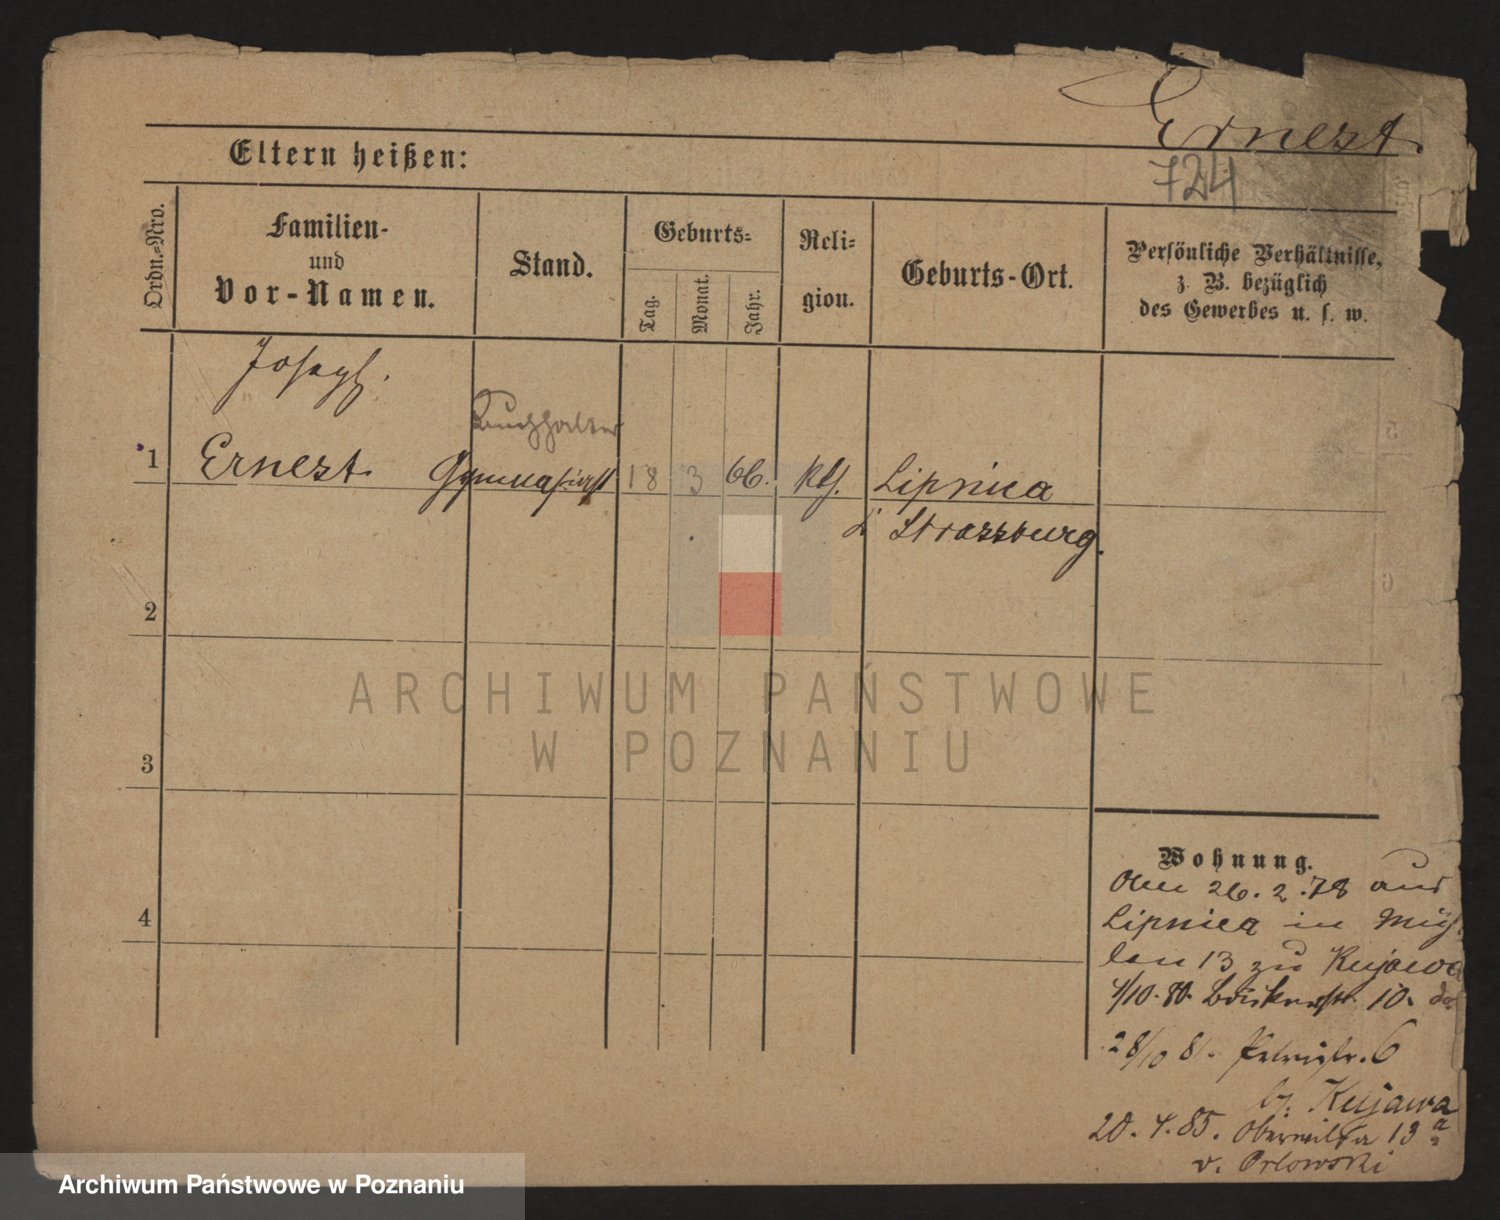 Ernest
Eltern heißen:
724
Ordn.-Nro.
Familien-
und
Vor-Namen.
Stand.
Geburts-
Tag.
Monat.
Jahr.
Reli-
gion.
Geburts-Ort.
Persönliche Verhältnisse,
z. B. bezüglich
des Gewerbes u. s. w.
Joseph.
Buchhalter
1 Ernest Gymnasiast 18 3 66. kth. Lipnica
Strassburg.
2
ARCHIWUM PAŃSTWOWE
W POZNANIU
3
4
Wohnung.
26.2.78 aus
Lipnica in Müh
len 13 zu Kujawa
4/10.80. 10.
28/10 81. 6
b. Kujawa
20.4.85. 13a
v. Orlowski
Archiwum Państwowe w Poznaniu